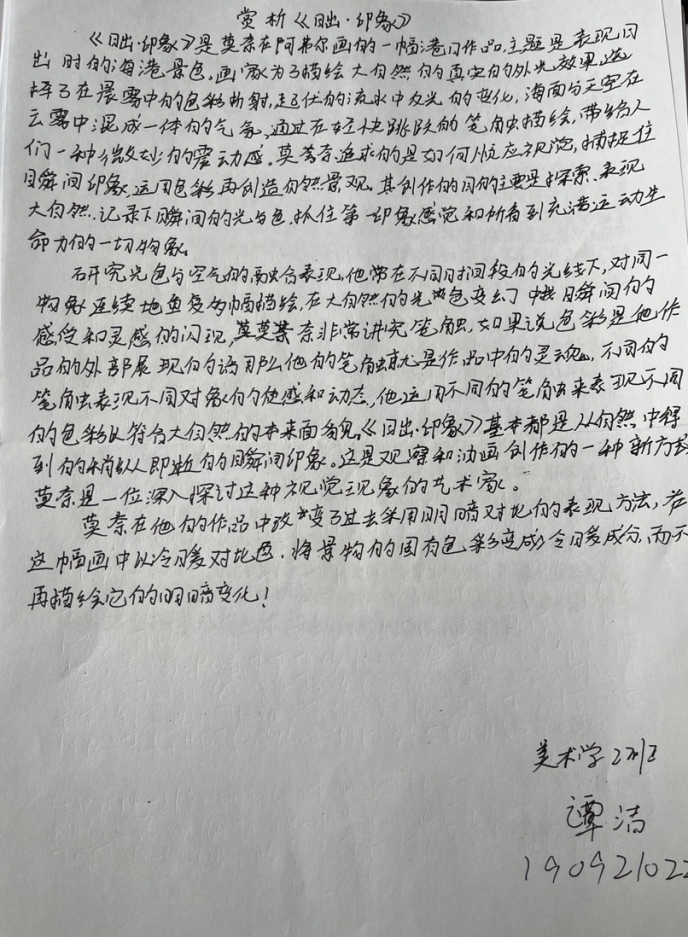 赏析《日出·印象》
《日出·印象》是莫奈在阿弗尔画的一幅港口作品,主题是表现日
出时的海港景色,画家为了描绘大自然的真实的外光效果,选
择了在晨雾中的色彩折射,起伏的流水中反光的变化,海面与天空在
云雾中混成一体的气氛,通过在轻快跳跃的笔触描绘,带给人
们一种微妙的震动感。莫奈追求的是如何顺应视觉,捕捉住
瞬间印象,运用色彩再创造自然景观。其创作的目的主要是探索、表现
大自然,记录下瞬间的光与色,抓住第一印象感觉和所看到充满运动生
命力的一切物象。
研究光色与空气的融合表现,他常在不同时间段的光线下,对同一
物象连续地重复多幅描绘,在大自然的光色变幻中找瞬间的
感受和灵感的闪现,莫奈非常讲究笔触,如果说色彩是他作
品的外部展现的话那么他的笔触就是作品中的灵魂。不同的
笔触表现不同对象的质感和动态,他运用不同的笔触来表现不同
的色彩以符合大自然的本来面貌,《日出·印象》基本都是从自然中得
到的稍纵即逝的瞬间印象。这是观察和油画创作的一种新方式
莫奈是一位深入探讨这种视觉现象的艺术家。
莫奈在他的作品中改变了过去采用明暗对比的表现方法,在
这幅画中以冷暖对比色,将景物的固有色彩变成冷暖成分,而不
再描绘它的明暗变化!
美术学2班
谭洁
190921022